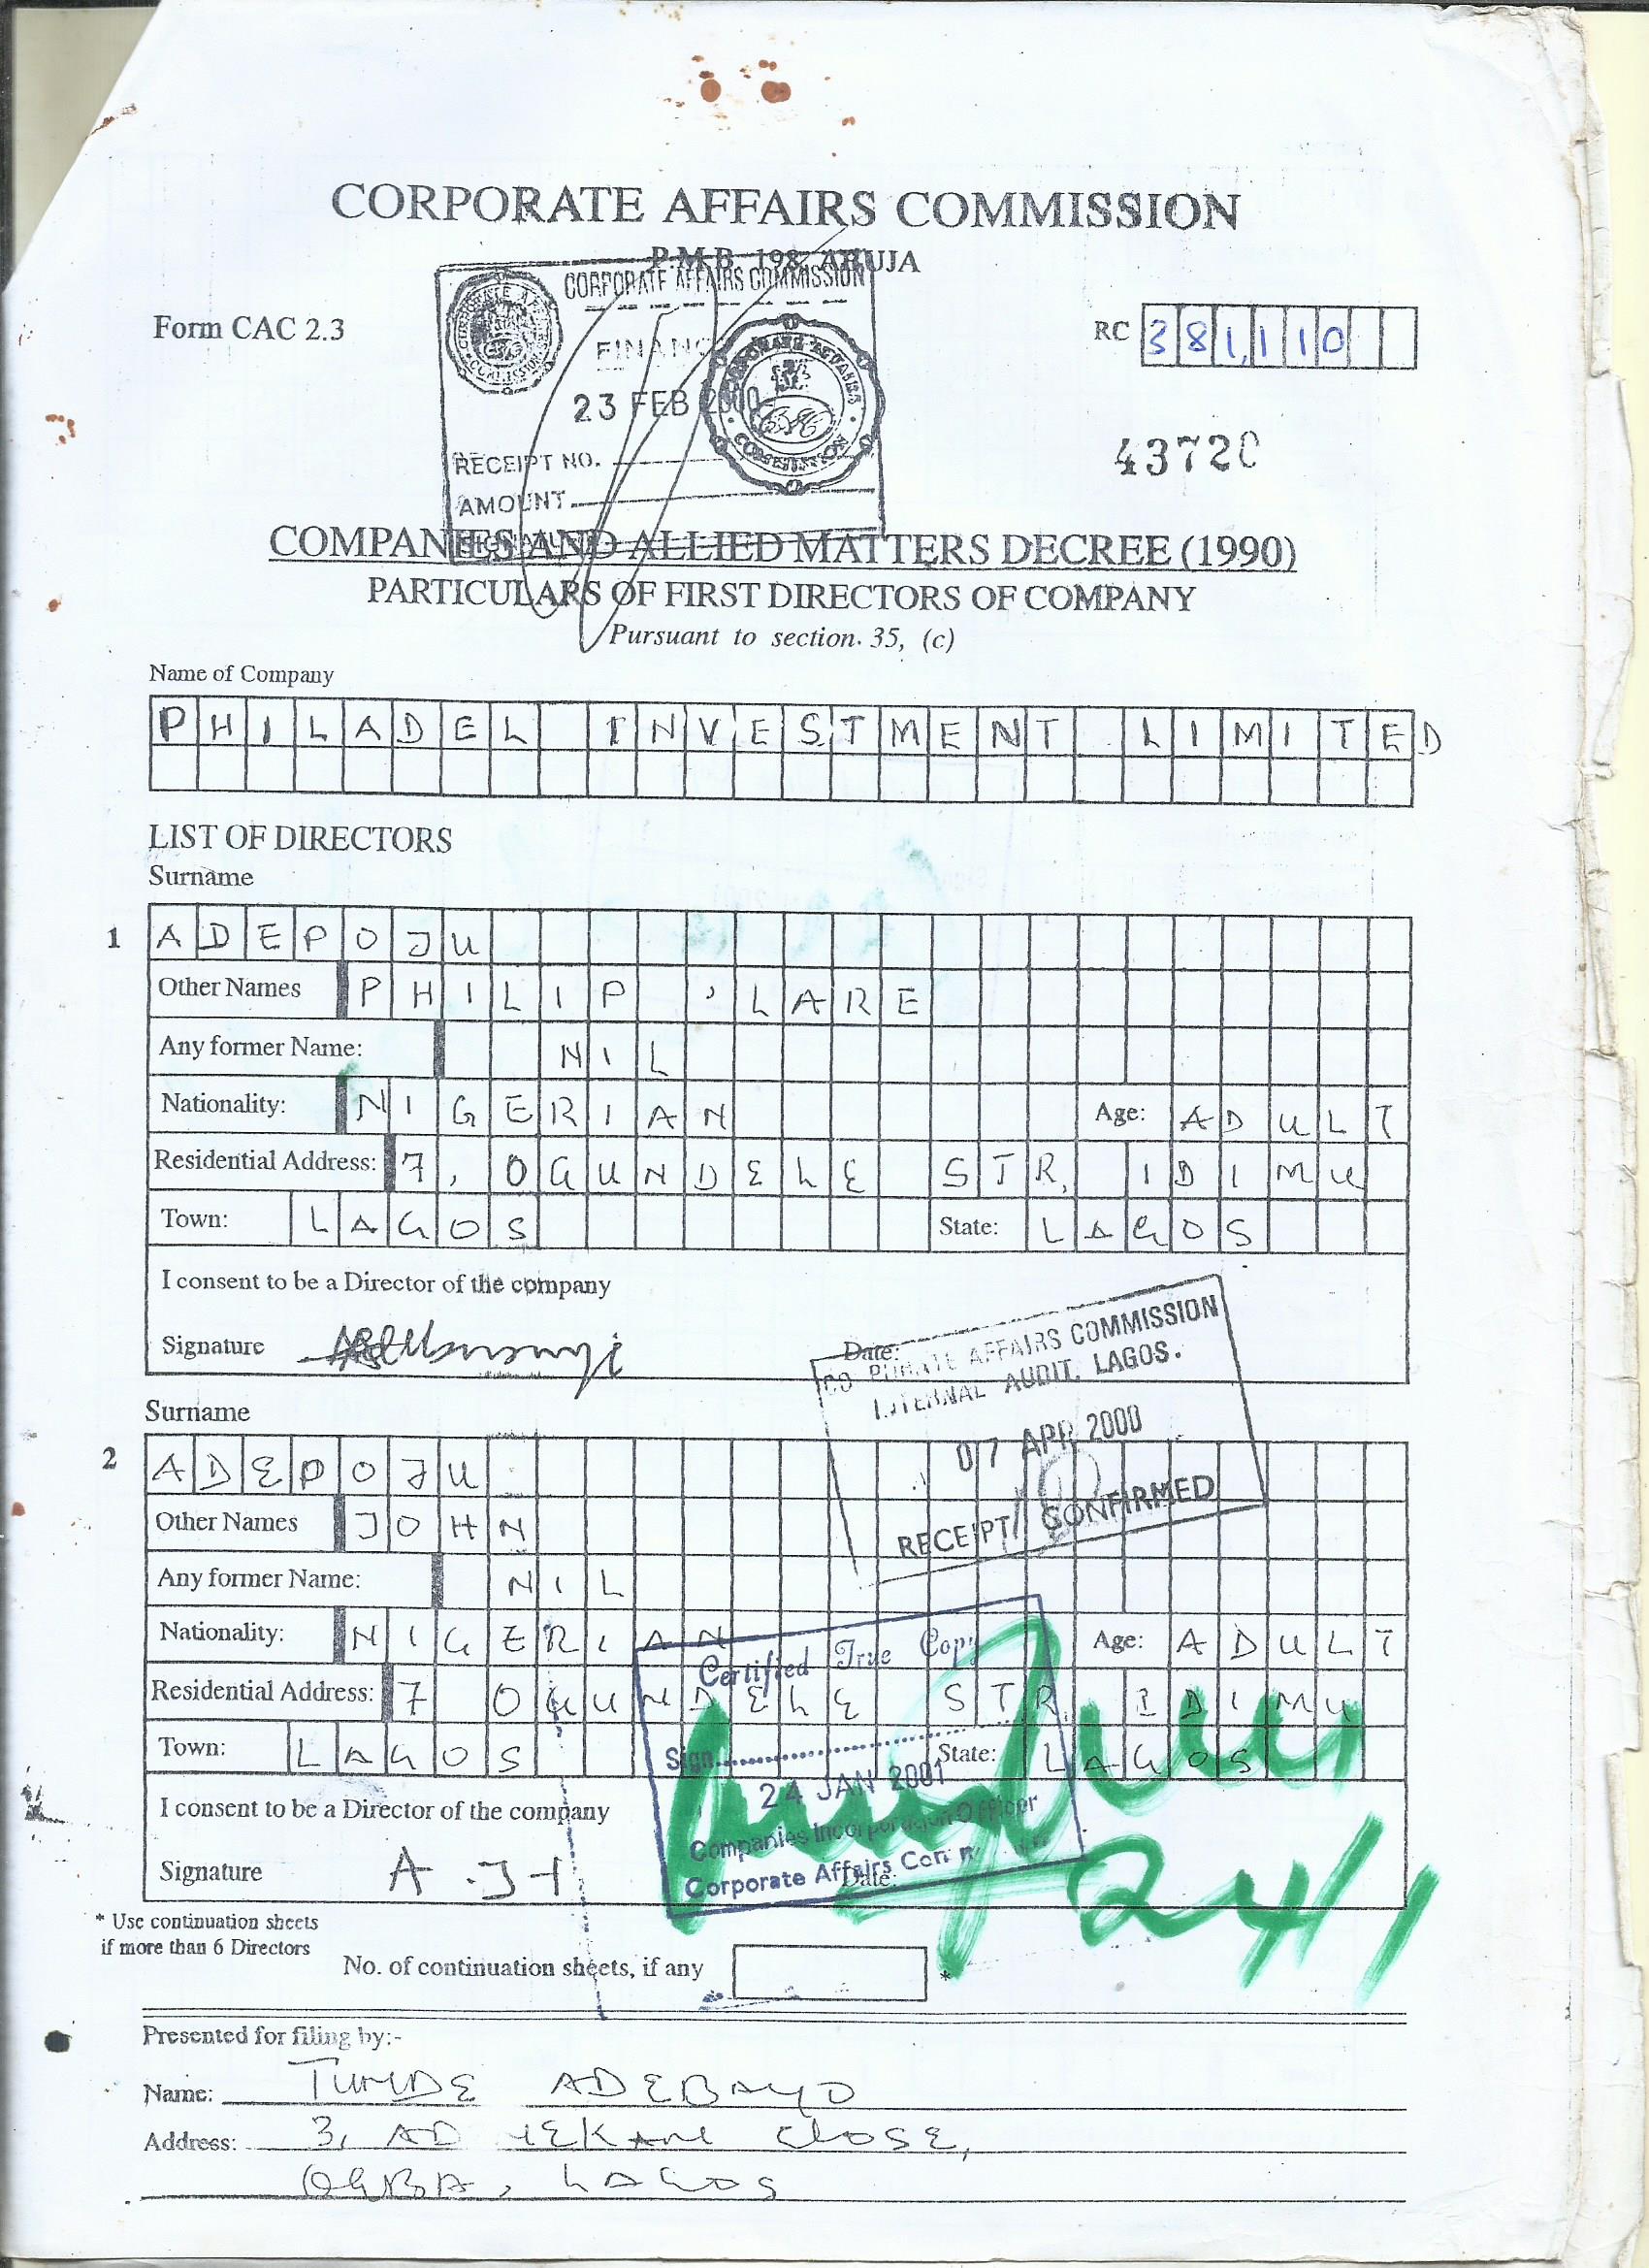 CORPORATE AFFAIRS COMMISSION
P.M.B. 198, ABUJA
CORPORATE AFFAIRS COMMISSION
Form CAC 2.3
RC 381,110
FINANC
23 FEB 2000
43720
RECEIPT NO.
AMOUNT
SIGNATURE
COMPANIES AND ALLIED MATTERS DECREE (1990)
PARTICULARS OF FIRST DIRECTORS OF COMPANY
Pursuant to section. 35, (c)
Name of Company
PHILADEL INVESTMENT LIMITED
LIST OF DIRECTORS
Surname
1 ADEPOJU
Other Names PHILIP 'LARE
Any former Name: NIL
Nationality: NIGERIAN Age: ADULT
Residential Address: 7, OGUNDELE STR, IDIMU
Town: LAGOS State: LAGOS
I consent to be a Director of the company
Signature Date:
CORPORATE AFFAIRS COMMISSION
INTERNAL AUDIT, LAGOS.
07 APR 2000
RECEIPT CONFIRMED
Surname
2 ADEPOJU
Other Names JOHN
Any former Name: NIL
Nationality: NIGERIAN Age: ADULT
Residential Address: 7 OGUNDELE STR, IDIMU
Town: LAGOS State: LAGOS
I consent to be a Director of the company
Signature A.JH Date:
Certified True Copy
Sign
24 JAN 2001
Companies Incorporation Officer
Corporate Affairs Com
24/1
* Use continuation sheets
if more than 6 Directors
No. of continuation sheets, if any *
Presented for filing by:-
Name: TUNDE ADEBAYO
Address: 3, CLOSE,
OGBA, LAGOS